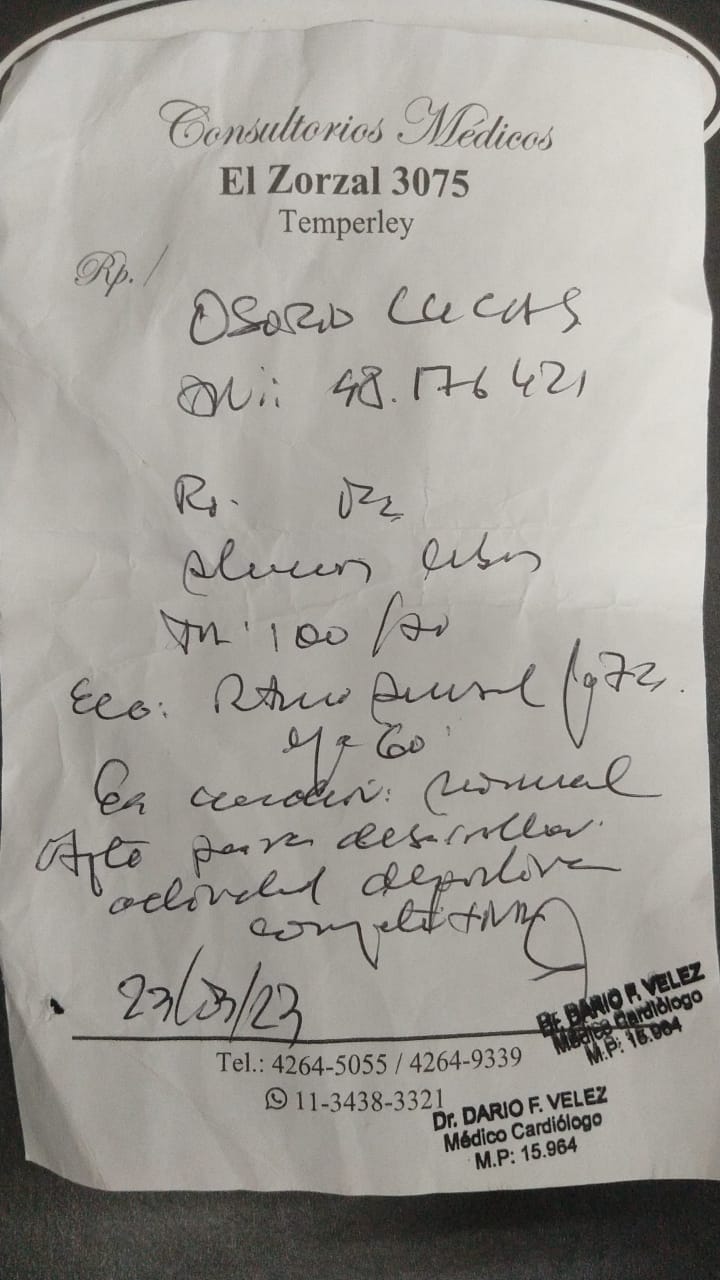 Consultorios Médicos
El Zorzal 3075
Temperley
Rp./
OSORIO LUCAS
DNI: 48.176 421
R1. R2
pulmones libres
TA: 100/70
ECG: Ritmo sinusal
60
normal
Apto para desarrollar
actividad deportiva
competitiva
23/03/23
Dr. DARIO F. VELEZ
Médico Cardiólogo
M.P: 15.964
Tel.: 4264-5055 / 4264-9339
11-3438-3321
Dr. DARIO F. VELEZ
Médico Cardiólogo
M.P: 15.964